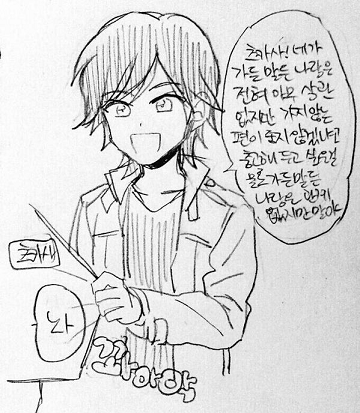 츠카사! 네가
가든 말든 나랑은
전혀 아무 상관
없지만 가지 않는
편이 좋지 않겠냐고
충고해 두고 싶은걸
물론 가든 말든
나랑은 관계
없지만 말야
나
꽈아악